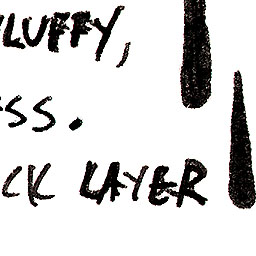 FLUFFY,
SS.
CK LAYER